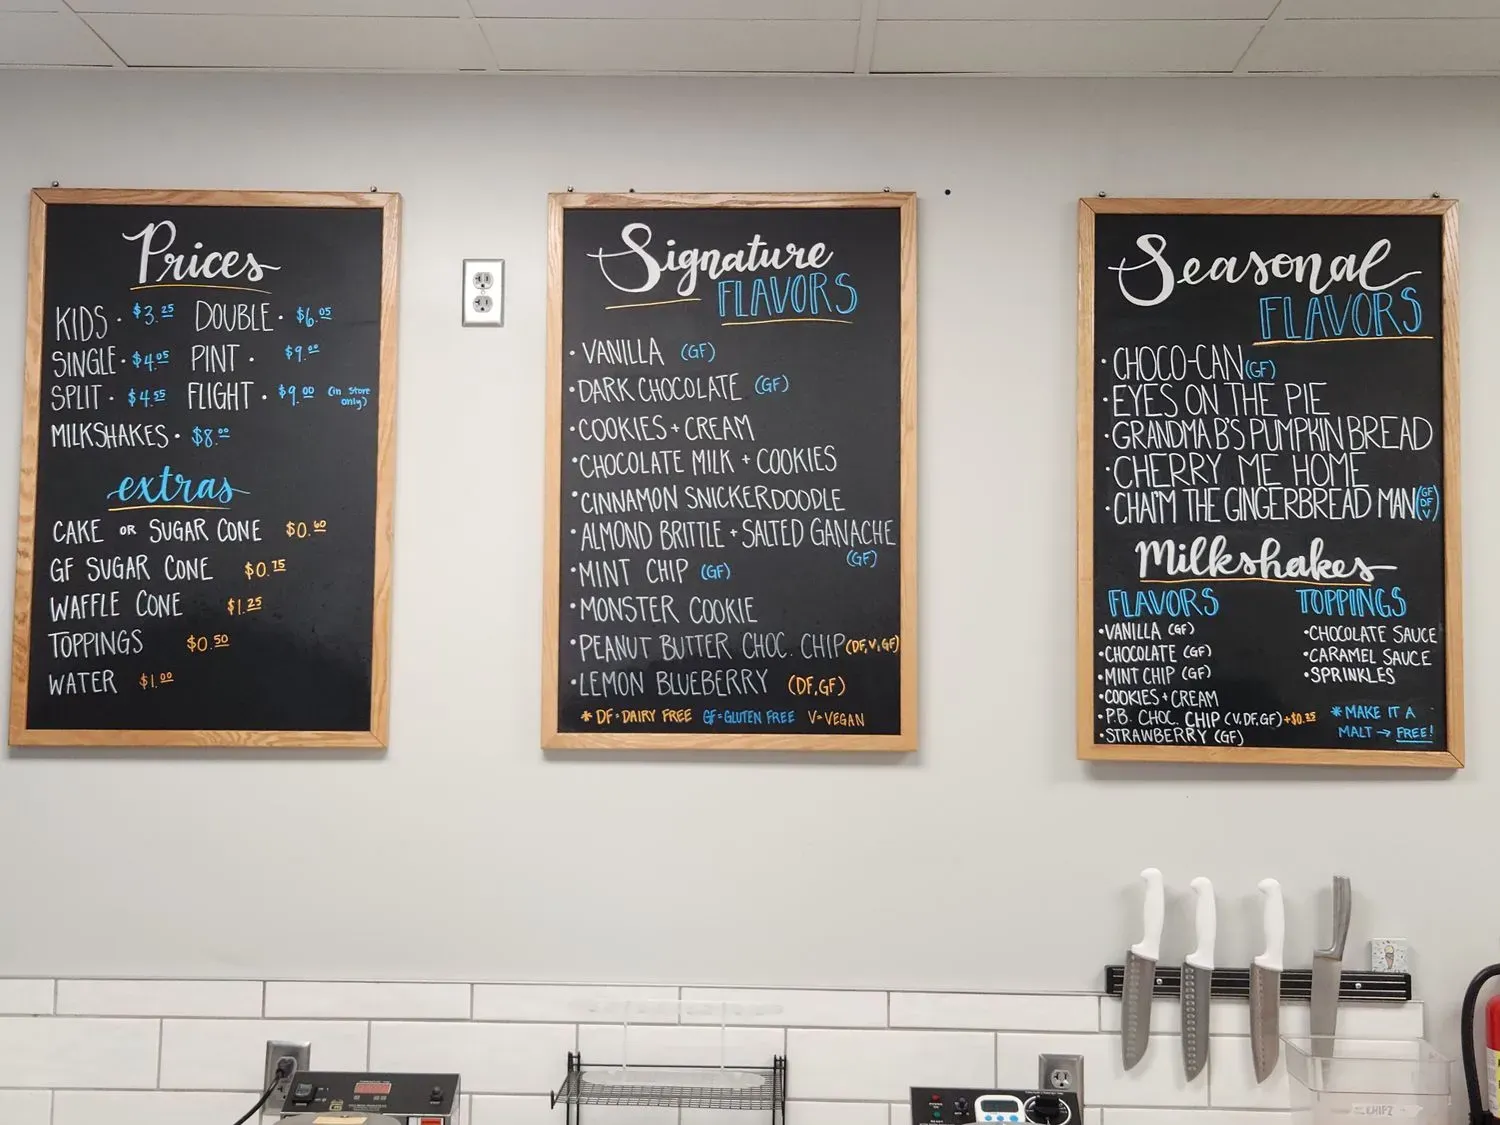 Prices
KIDS · $3.25 DOUBLE · $6.05
SINGLE · $4.05 PINT · $9.00
SPLIT · $4.55 FLIGHT · $9.00 (in store only)
MILKSHAKES · $8.00
extras
CAKE OR SUGAR CONE $0.60
GF SUGAR CONE $0.75
WAFFLE CONE $1.25
TOPPINGS $0.50
WATER $1.00
Signature
FLAVORS
• VANILLA (GF)
• DARK CHOCOLATE (GF)
• COOKIES + CREAM
• CHOCOLATE MILK + COOKIES
• CINNAMON SNICKERDOODLE
• ALMOND BRITTLE + SALTED GANACHE
(GF)
• MINT CHIP (GF)
• MONSTER COOKIE
• PEANUT BUTTER CHOC. CHIP (DF, V, GF)
• LEMON BLUEBERRY (DF, GF)
* DF = DAIRY FREE GF = GLUTEN FREE V = VEGAN
Seasonal
FLAVORS
• CHOCO-CAN (GF)
• EYES ON THE PIE
• GRANDMA B'S PUMPKIN BREAD
• CHERRY ME HOME
• CHAI'M THE GINGERBREAD MAN (GF DF V)
Milkshakes
FLAVORS
• VANILLA (GF)
• CHOCOLATE (GF)
• MINT CHIP (GF)
• COOKIES + CREAM
• P.B. CHOC. CHIP (V, DF, GF) +$0.25
• STRAWBERRY (GF)
TOPPINGS
• CHOCOLATE SAUCE
• CARAMEL SAUCE
• SPRINKLES
* MAKE IT A
MALT → FREE!